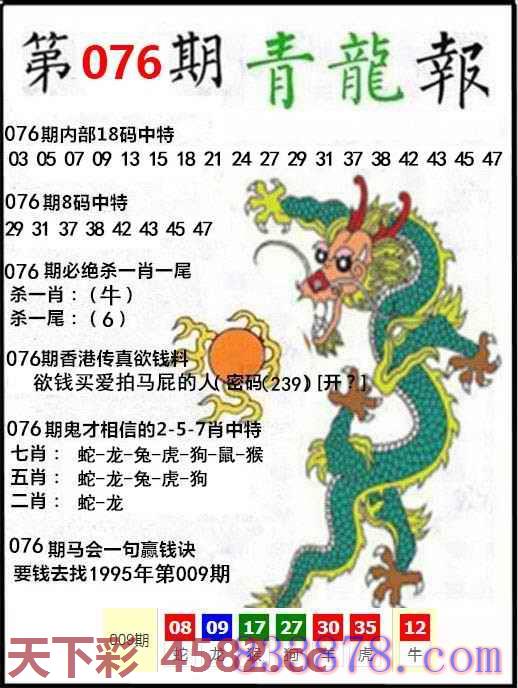 第076期青龍報
076期内部18码中特
03 05 07 09 13 15 18 21 24 27 29 31 37 38 42 43 45 47
076期8码中特
29 31 37 38 42 43 45 47
076期必绝杀一肖一尾
杀一肖：(牛)
杀一尾：(6)
076期香港传真欲钱料
欲钱买爱拍马屁的人(密码(239)[开？]
076期鬼才相信的2-5-7肖中特
七肖： 蛇-龙-兔-虎-狗-鼠-猴
五肖： 蛇-龙-兔-虎-狗
二肖： 蛇-龙
076期马会一句赢钱诀
要钱去找1995年第009期
009期 08 09 17 27 30 35 12
蛇 龙 猴 狗 羊 虎 牛
天下彩